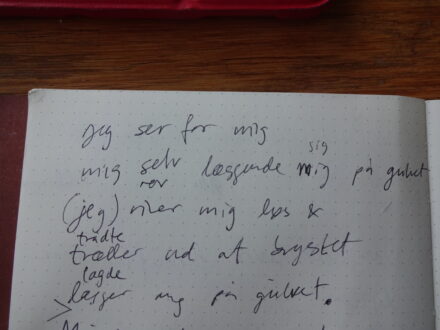 Jeg ser for mig
sig
mig selv læggende mig på gulvet
rev
(jeg) river mig løs &
trådte
træder ud af brystet
lagde
> lægger mig på gulvet.